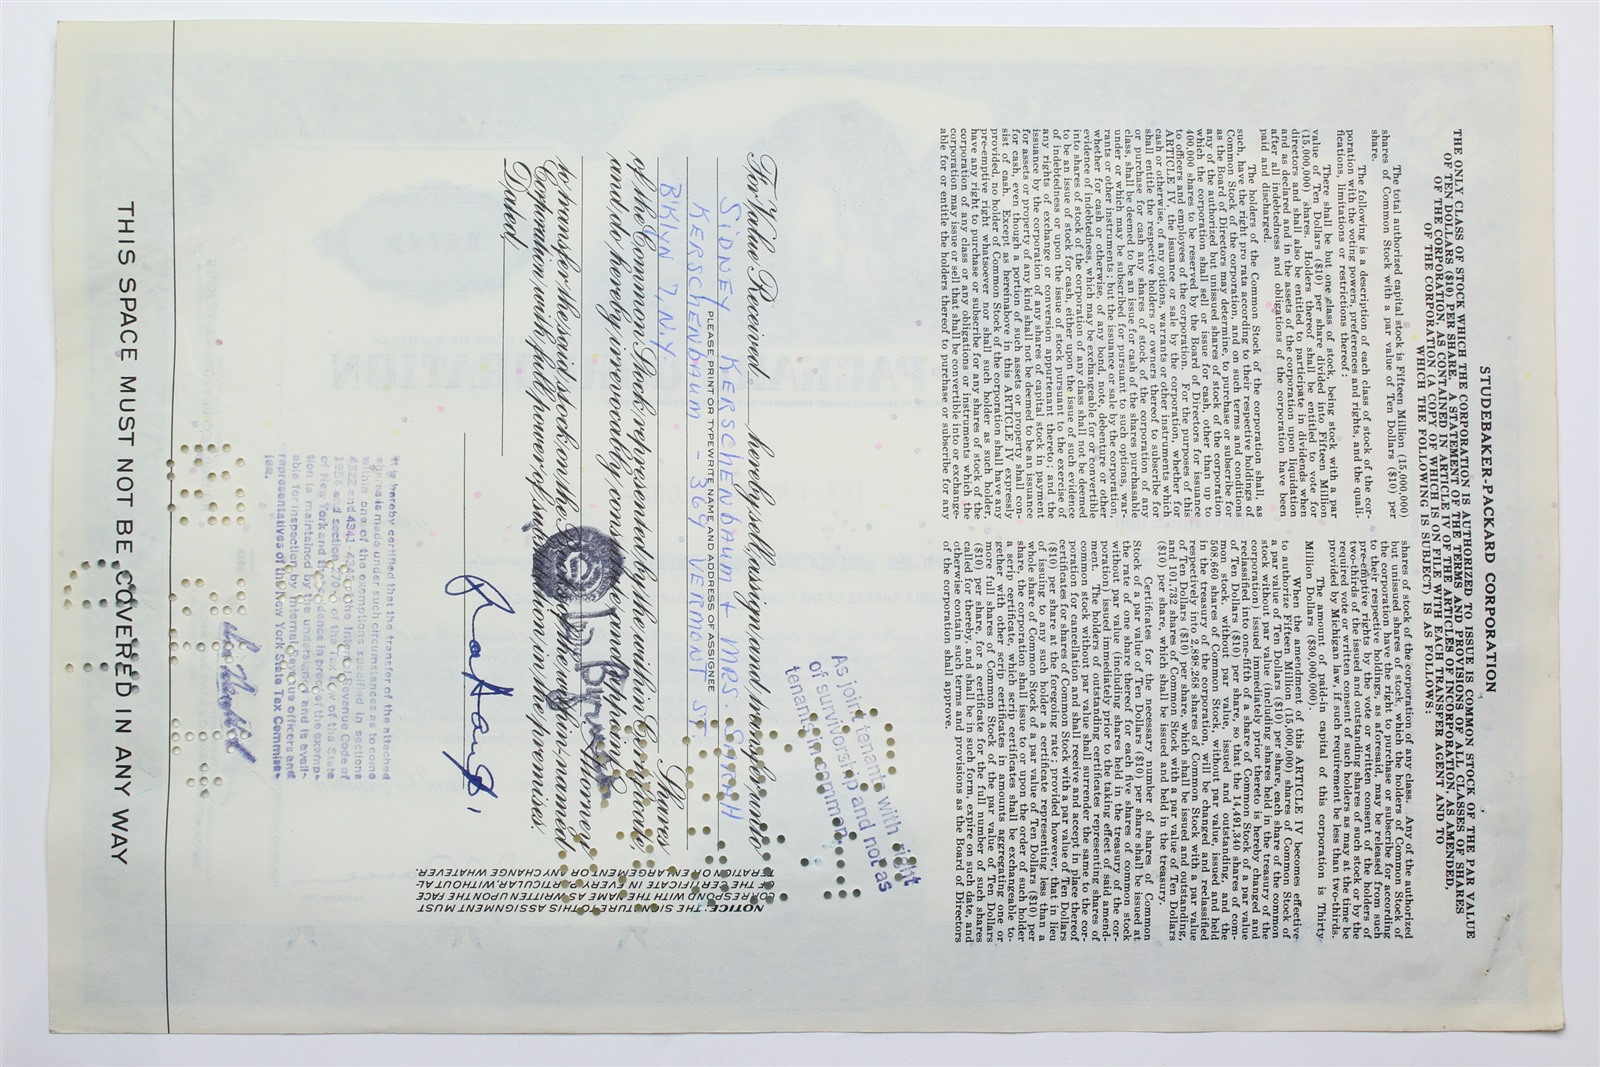 STUDEBAKER-PACKARD CORPORATION
THE ONLY CLASS OF STOCK WHICH THE CORPORATION IS AUTHORIZED TO ISSUE IS COMMON STOCK OF THE PAR VALUE
OF TEN DOLLARS ($10) PER SHARE. A STATEMENT OF THE TERMS AND PROVISIONS OF ALL CLASSES OF SHARES
OF THE CORPORATION, AS CONTAINED IN ARTICLE IV OF THE ARTICLES OF INCORPORATION, AS AMENDED,
OF THE CORPORATION (A COPY OF WHICH IS ON FILE WITH EACH TRANSFER AGENT AND TO
WHICH THE FOLLOWING IS SUBJECT) IS AS FOLLOWS:
The total authorized capital stock is Fifteen Million (15,000,000)
shares of Common Stock with a par value of Ten Dollars ($10) per
share.
The following is a description of each class of stock of the cor-
poration with the voting powers, preferences and rights, and the quali-
fications, limitations or restrictions thereof:
There shall be but one class of stock, being stock with a par
value of Ten Dollars ($10) per share divided into Fifteen Million
(15,000,000) shares. Holders thereof shall be entitled to vote for
directors and shall also be entitled to participate in dividends when
and as declared and in the assets of the corporation upon liquidation
after all indebtedness and obligations of the corporation have been
paid and discharged.
The holders of the Common Stock of the corporation shall, as
such, have the right pro rata according to their respective holdings of
Common Stock of the corporation, and on such terms and conditions
as the Board of Directors may determine, to purchase or subscribe for
any of the authorized but unissued shares of stock of the corporation
which the corporation shall sell or issue for cash, other than up to
400,000 shares to be reserved by the Board of Directors for issuance
to officers and employees of the corporation. For the purposes of this
ARTICLE IV, the issuance or sale by the corporation, whether for
cash or otherwise, of any options, warrants or other instruments which
shall entitle the respective holders or owners thereof to subscribe for
or purchase for cash any shares of stock of the corporation of any
class, shall be deemed to be an issue for cash of the shares purchasable
under or which may be subscribed for pursuant to such options, war-
rants or other instruments; but the issuance or sale by the corporation,
whether for cash or otherwise, of any bond, note, debenture or other
evidence of indebtedness, which may be exchangeable for or convertible
into shares of stock of the corporation of any class shall not be deemed
to be an issue of stock for cash, either upon the issue of such evidence
of indebtedness or upon the issue of stock pursuant to the exercise of
any rights of exchange or conversion appurtenant thereto; and the
issuance by the corporation of any shares of capital stock in payment
for assets or property of any kind shall not be deemed to be an issuance
for cash, even though a portion of such assets or property shall con-
sist of cash. Except as hereinabove in this ARTICLE IV expressly
provided, no holder of Common Stock of the corporation shall have any
pre-emptive right whatsoever nor shall such holder as such holder,
have any right to purchase or subscribe for any shares of stock of the
corporation of any class or any obligations or instruments which the
corporation may issue or sell that shall be convertible into or exchange-
able for or entitle the holders thereof to purchase or subscribe for any
shares of stock of the corporation of any class. Any of the authorized
but unissued shares of stock, which the holders of Common Stock of
the corporation have the right to purchase or subscribe for according
to their respective holdings, as aforesaid, may be released from such
pre-emptive rights by the vote or written consent of the holders of
two-thirds of the issued and outstanding shares of such stock or by the
required vote or written consent of such holders as may at the time be
provided by Michigan law, if such requirement be less than two-thirds.
The amount of paid-in capital of this corporation is Thirty
Million Dollars ($30,000,000).
When the amendment of this ARTICLE IV becomes effective
to authorize Fifteen Million (15,000,000) shares of Common Stock of
a par value of Ten Dollars ($10) per share, each share of Common
stock without par value (including shares held in the treasury of the
corporation) issued immediately prior thereto is hereby changed and
reclassified into one-fifth of a share of Common Stock of a par value
of Ten Dollars ($10) per share, so that the 14,491,340 shares of com-
mon stock, without par value, issued and outstanding, and the
508,660 shares of Common Stock, without par value, issued and held
in the treasury of the corporation, will be changed and reclassified
respectively into 2,898,268 shares of Common Stock with a par value
of Ten Dollars ($10) per share, which shall be issued and outstanding,
and 101,732 shares of Common Stock with a par value of Ten Dollars
($10) per share, which shall be issued and held in the treasury.
Certificates for the necessary number of shares of Common
Stock of a par value of Ten Dollars ($10) per share shall be issued at
the rate of one share thereof for each five shares of common stock
without par value (including shares held in the treasury of the cor-
poration) issued immediately prior to the taking effect of said amend-
ment. The holders of outstanding certificates representing shares of
common stock without par value shall surrender the same to the cor-
poration for cancellation and shall receive and accept in place thereof
certificates for shares of Common Stock with a par value of Ten Dollars
($10) per share at the foregoing rate; provided however, that in lieu
of issuing to any such holder a certificate representing less than a
whole share of Common Stock of a par value of Ten Dollars ($10) per
share, the corporation shall issue to or upon the order of such holder
a scrip certificate, which scrip certificates shall be exchangeable to-
gether with other scrip certificates in amounts aggregating one or
more full shares of Common Stock of the par value of Ten Dollars
($10) per share, for a certificate for the full number of such shares
called for thereby, and shall be in such form, expire on such date, and
otherwise contain such terms and provisions as the Board of Directors
of the corporation shall approve.
As joint tenants with right
of survivorship and not as
tenants in common
For Value Received, hereby sell, assign and transfer unto
SIDNEY KERSCHENBAUM + MRS. SARAH
PLEASE PRINT OR TYPEWRITE NAME AND ADDRESS OF ASSIGNEE
KERSCHENBAUM - 369 VERMONT ST.
B'KLYN 7, N.Y. Shares
of the Common Stock represented by the within Certificate,
and do hereby irrevocably constitute and appoint
Attorney
to transfer the said stock on the Books of the within-named
Corporation, with full power of substitution in the premises.
Dated,
NOTICE: THE SIGNATURE TO THIS ASSIGNMENT MUST
CORRESPOND WITH THE NAME AS WRITTEN UPON THE FACE
OF THE CERTIFICATE IN EVERY PARTICULAR, WITHOUT AL-
TERATION OR ENLARGEMENT OR ANY CHANGE WHATEVER.
It is hereby certified that the transfer of the attached
shares is made under such circumstances as to come
within one of the exemptions specified in sections
4322 and 4341-4345 of the Internal Revenue Code of
1954 and section 270 of the Tax Law of the State
of New York and the evidence in proof of the exemp-
tion is maintained by the undersigned and is avail-
able for inspection by Internal Revenue officers and
representatives of the New York State Tax Commis-
sion.
THIS SPACE MUST NOT BE COVERED IN ANY WAY